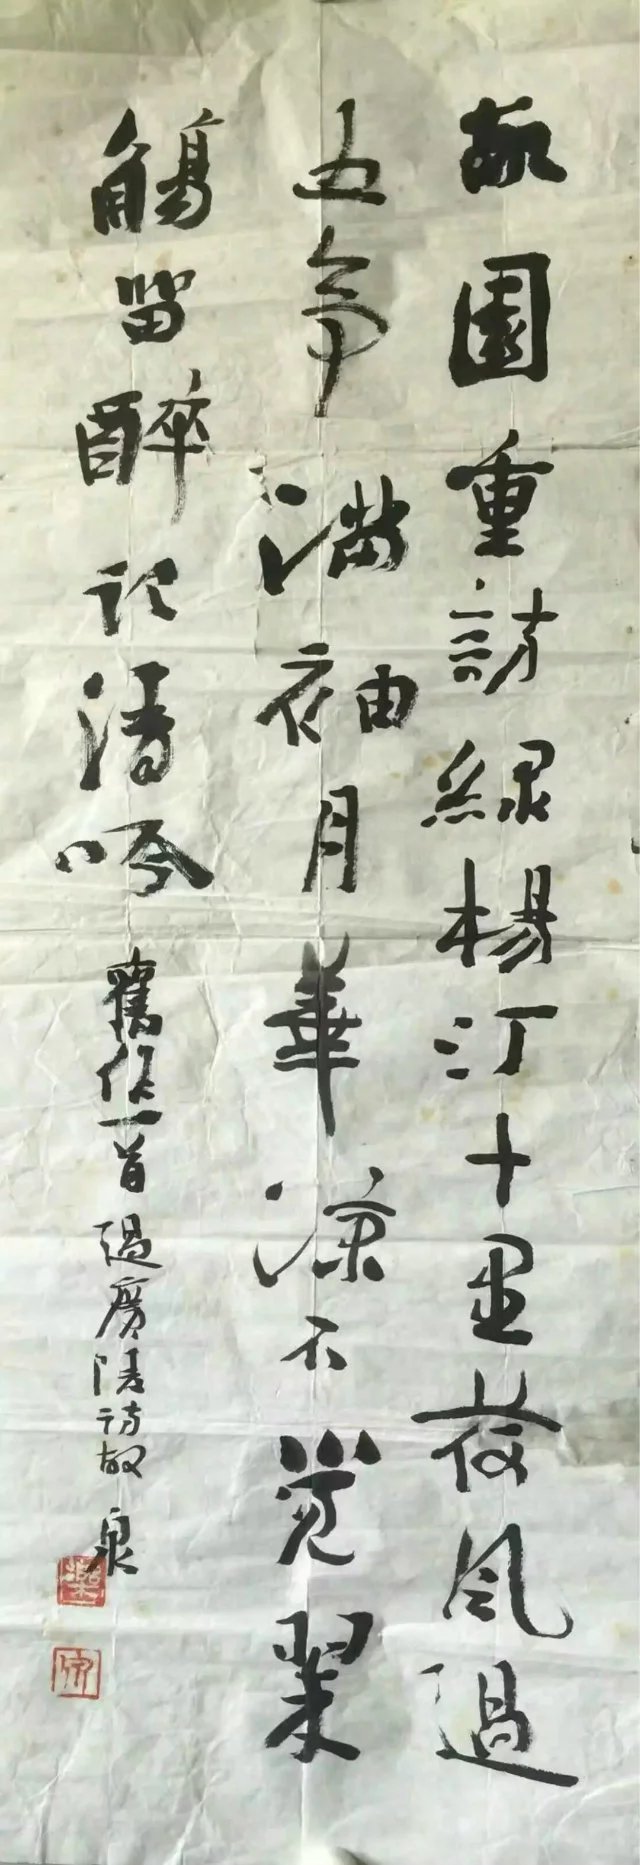 故園重訪綠楊汀十里荷風過
五亭滿袖月華涼不覺翠
觴留醉記清吟
舊作一首 過廣陵訪故 泉